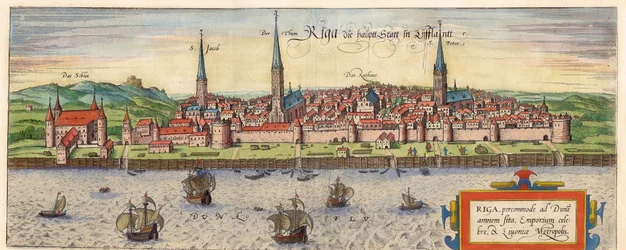 Riga die haupt Statt in Lifflandtt
Der Thum
S. Jacob
S. Peter
Das Schlos
Das Rathaus
DUNA FLU
RIGA, percommode ad Dunã
amnem sita, Emporium cele
bre, & Liuoniæ Metropolis.